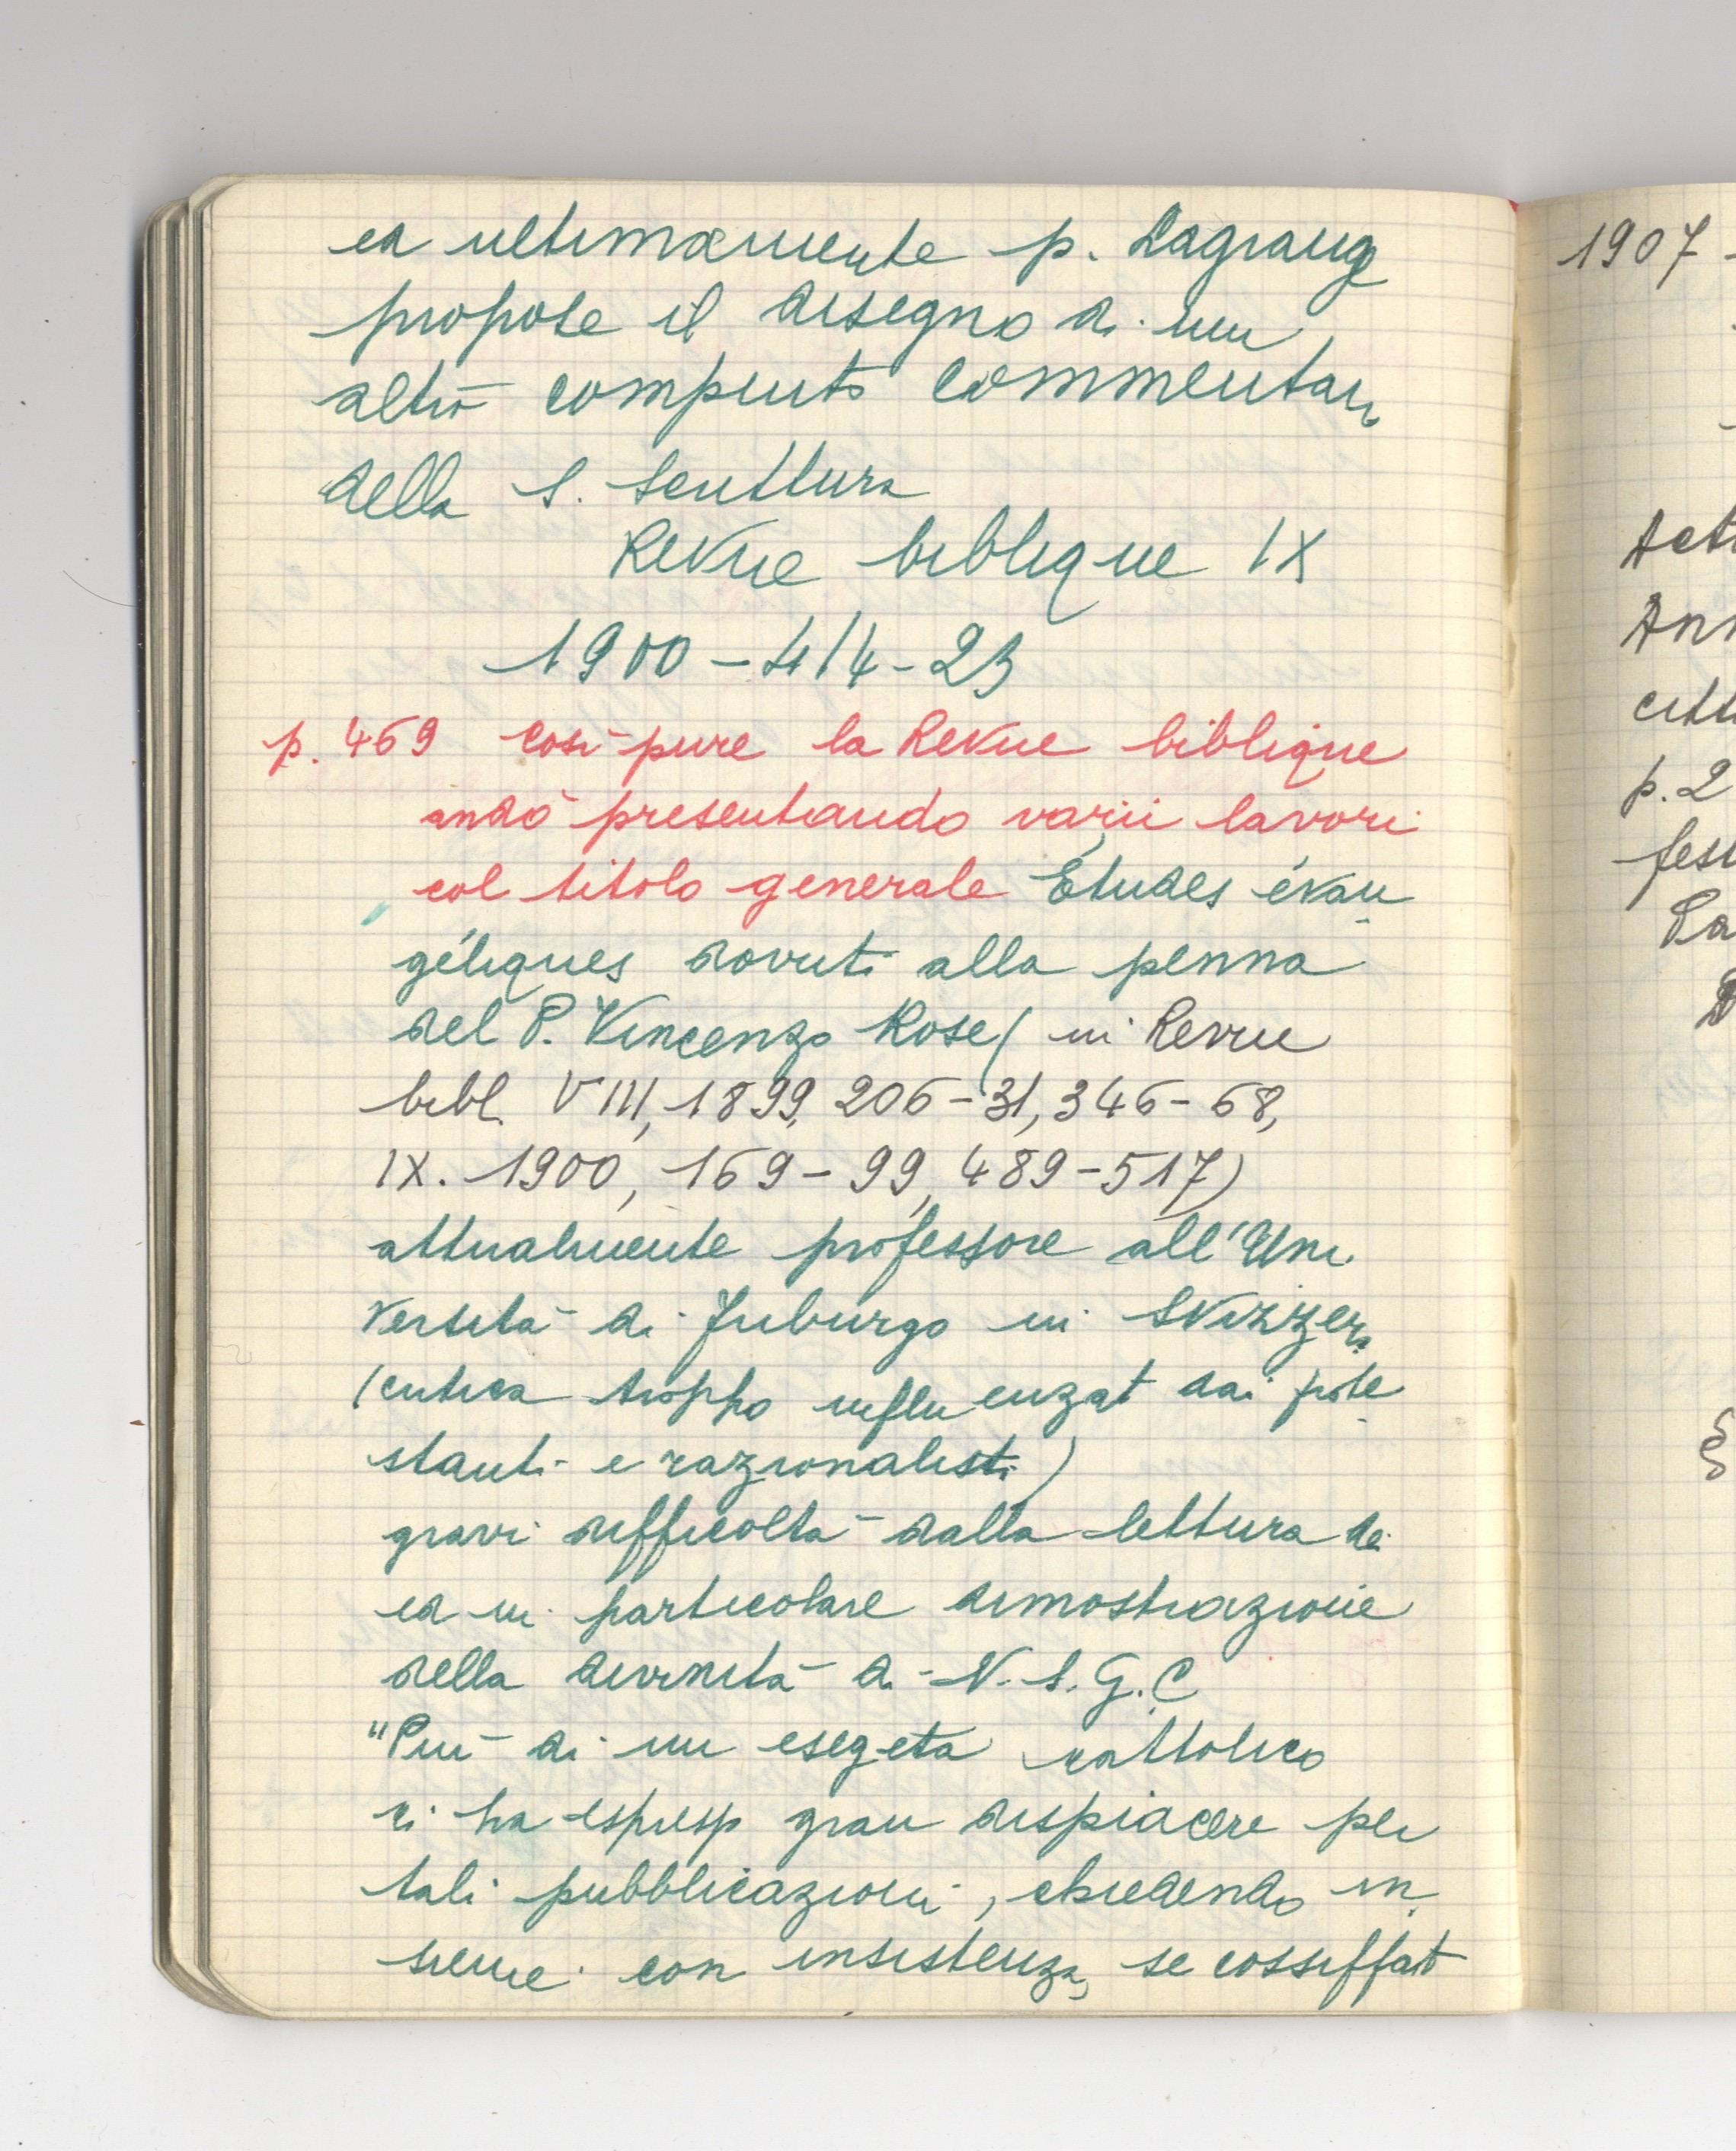 ed ultimamente p. Lagrange
propose il disegno di un
altro compiuto commentario
della S. Scrittura
Revue biblique IX
1900 - 414-23
p. 469 così pure la Revue biblique
andò presentando varii lavori
col titolo generale Études évan
géliques dovuti alla penna
del P. Vincenzo Rose ( in Revue
bibl. VIII, 1899, 206-31, 346-68,
IX. 1900, 169-99, 489-517)
attualmente professore all'Uni
versità di Friburgo in Svizzera
(critica troppo influenzat dai prote
stanti e razionalisti)
gravi difficoltà dalla lettura di
ed in particolare dimostrazione
della divinità di N. S. G. C
"Più di un esegeta cattolico
ci ha espresso gran dispiacere per
tali pubblicazioni, chiedendo in
sieme con insistenza, se cossiffatt
1907 -
p. 2
§